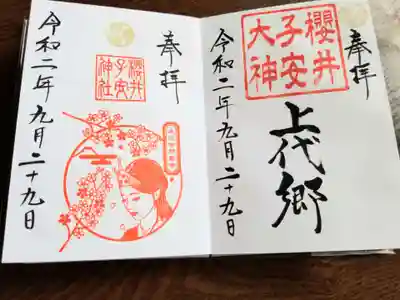 奉拝
櫻井
子安
大神
上代郷
令和二年九月二十九日
奉拝
櫻井
子安
神社
令和二年九月二十九日